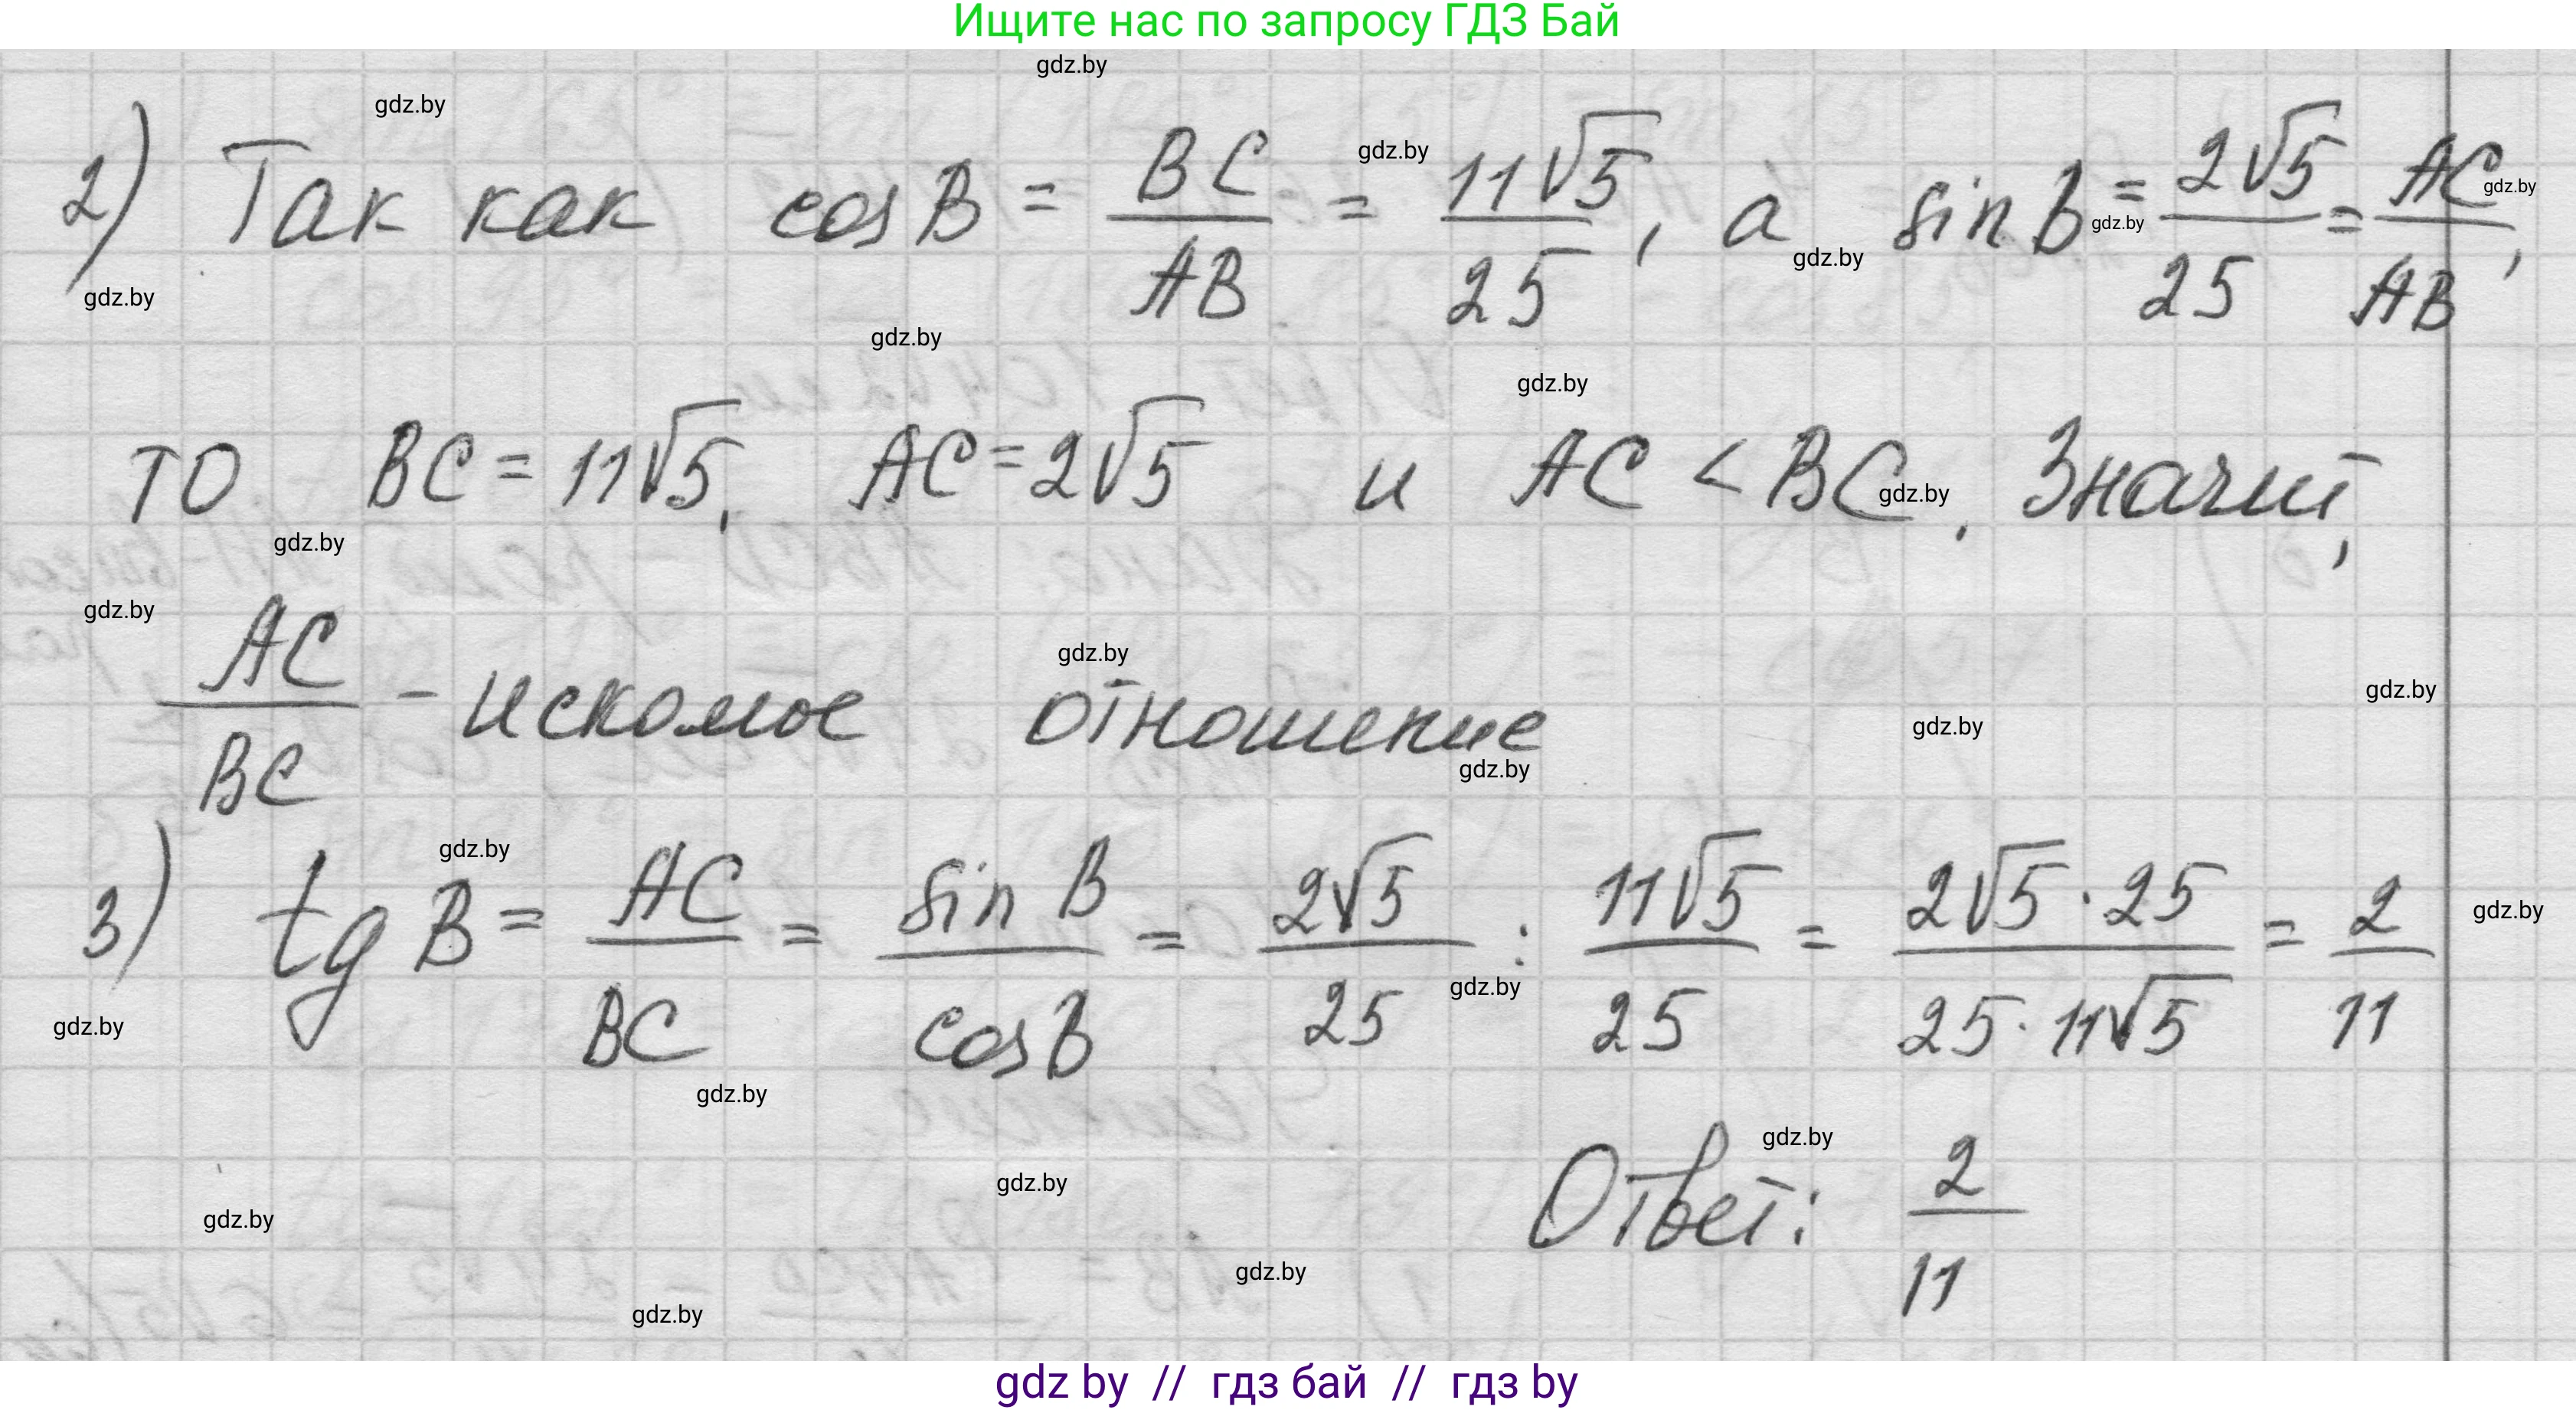 Ищите нас по запросу ГДЗ Бай
gdz.by
gdz.by
2) Так как cos B = BC/AB = 11√5/25, а sin B = 2√5/25 = AC/AB,
gdz.by
gdz.by
gdz.by
gdz.by
gdz.by
gdz.by
gdz.by
то BC = 11√5, AC = 2√5 и AC < BC. Значит,
gdz.by
gdz.by
gdz.by
AC/BC - искомое отношение
gdz.by
gdz.by
gdz.by
gdz.by
gdz.by
3) tg B = AC/BC = sin B/cos B = 2√5/25 : 11√5/25 = 2√5·25/25·11√5 = 2/11
gdz.by
gdz.by
gdz.by
gdz.by
gdz.by
Ответ: 2/11
gdz.by
gdz.by
gdz.by
gdz.by
gdz.by
gdz by // гдз бай // гдз by